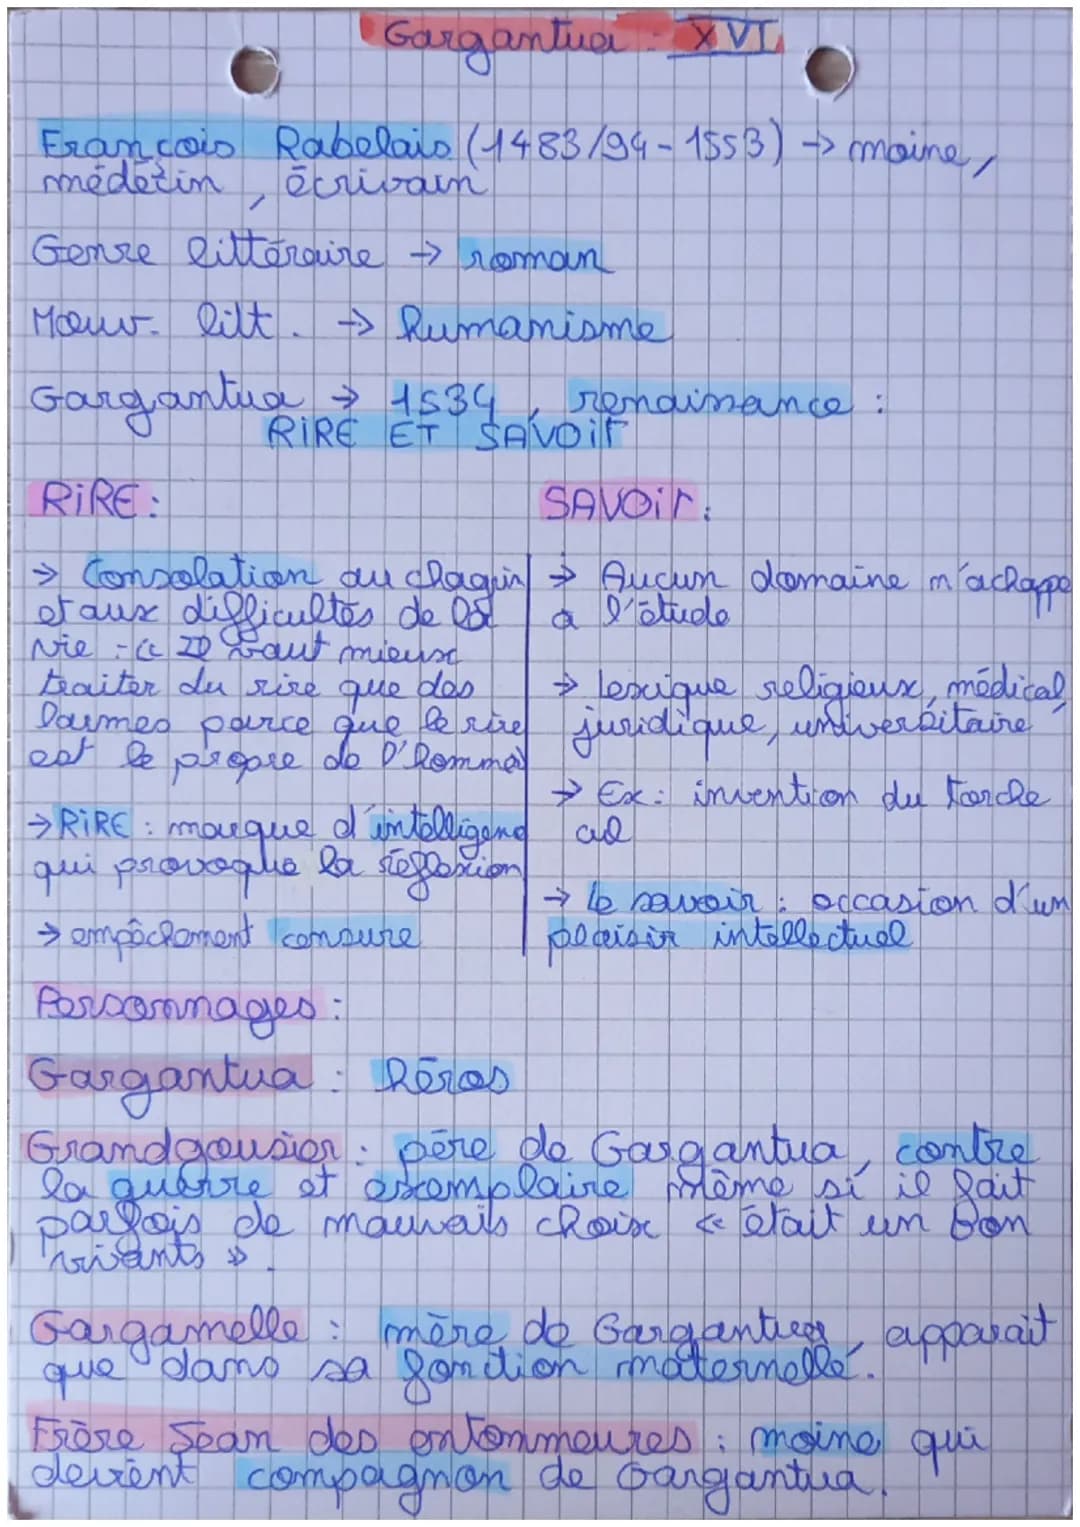 Gargantua : XVI
François Rabelais (1483/94-1553) → moine,
médecin, écrivain
Genre littéraire → roman
Mouv. litt. → humanisme
Gargantua → 1534, renaissance :
RIRE ET SAVOIR
RIRE :
→ Consolation au chagrin
et aux difficultés de la
vie : « Il vaut mieux
traiter du rire que des
larmes parce que le rire
est le propre de l'homme »
→ RIRE : marque d'intelligence
qui provoque la réflexion
→ empêchement censure
SAVOIR :
→ Aucun domaine n'achappe
a l'étude
→ lexique religieux, médical,
juridique, universitaire
→ Ex : invention du torche
cul
→ le savoir : occasion d'un
plaisir intellectuel
Personnages :
Gargantua : héros
Grandgousier : père de Gargantua, contre
la guerre et exemplaire même si il fait
parfois de mauvais choix « était un bon
vivants ».
Gargamelle : mère de Gargantua, apparait
que dans sa fonction maternelle.
Frère Jean des entommeures : moine qui
devient compagnon de Gargantua.